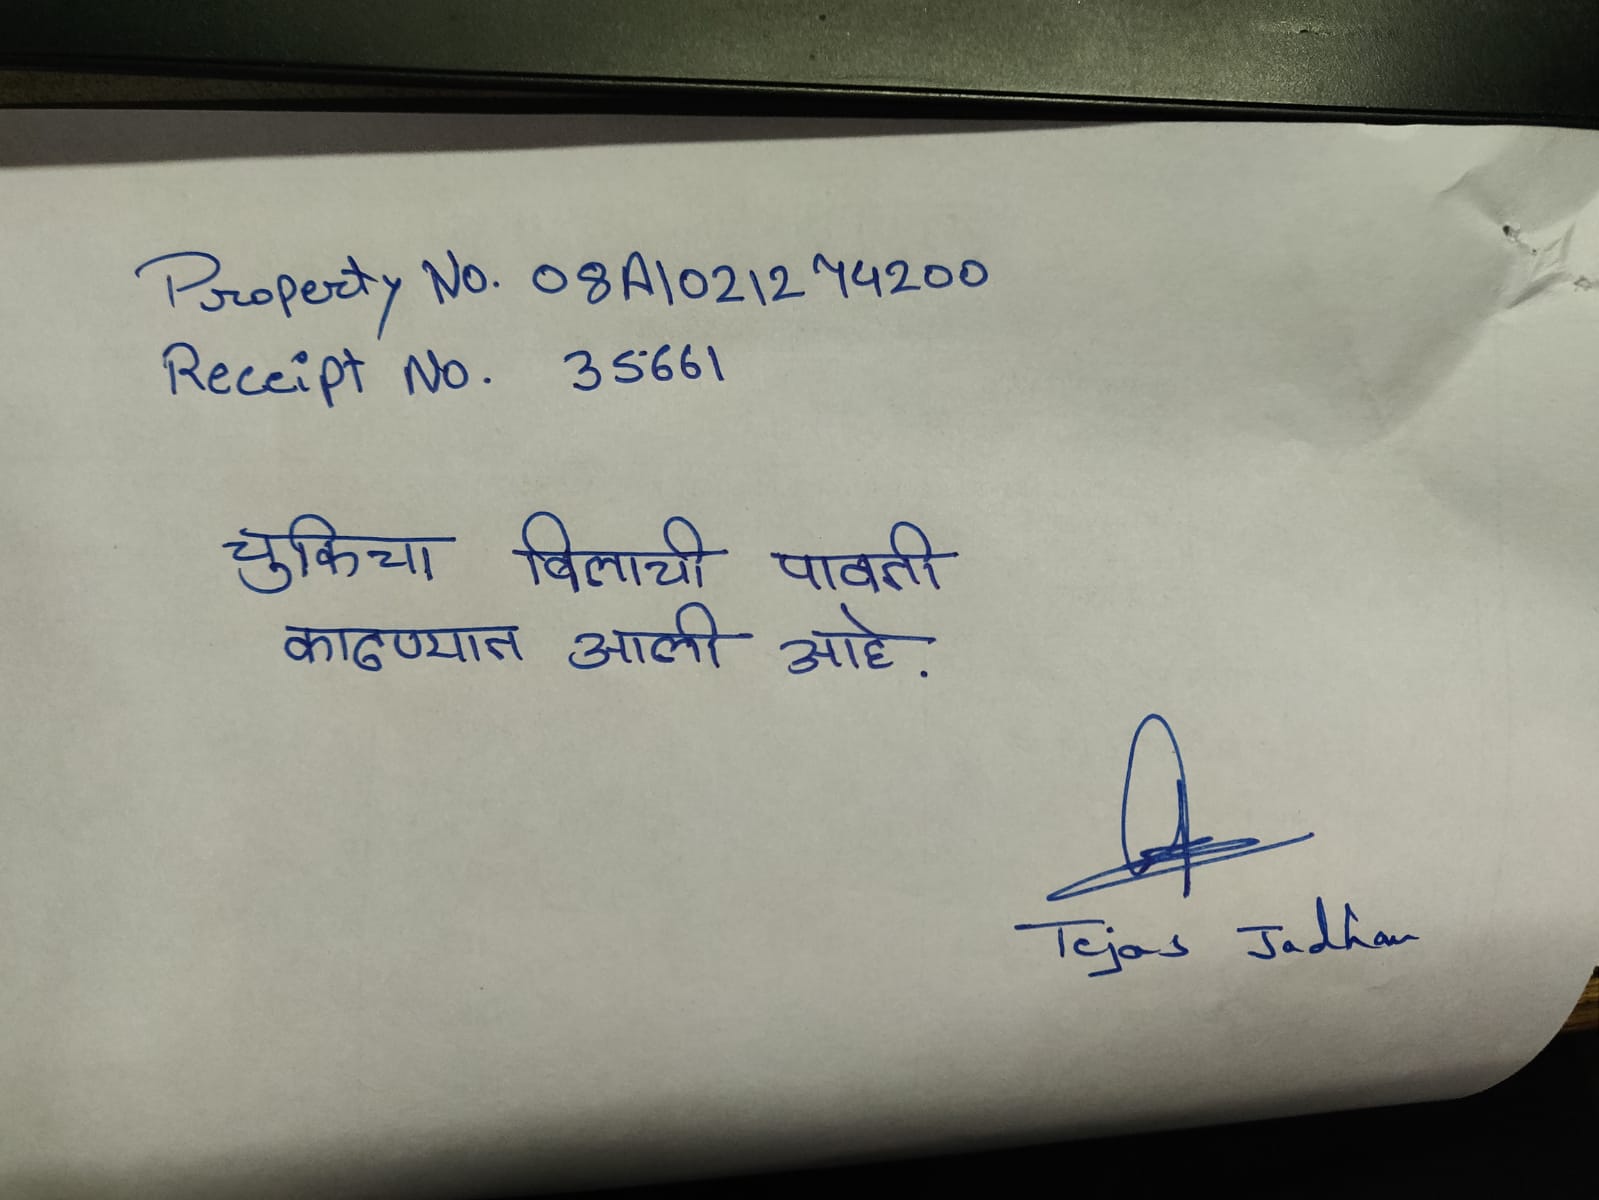 Property No. 08A10212744200
Receipt No. 35661
चुकिचा बिलाची पावती
काढण्यात आली आहे.
Tejas Jadhav